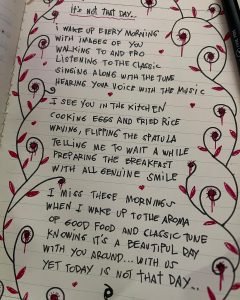 It's not that day...
I WAKE UP EVERY MORNING
WITH IMAGES OF YOU
WALKING TO AND FRO
LISTENING TO THE CLASSIC
SINGING ALONG WITH THE TUNE
HEARING YOUR VOICE WITH THE MUSIC
I SEE YOU IN THE KITCHEN
COOKING EGGS AND FRIED RICE
WAVING, FLIPPING THE SPATULA
TELLING ME TO WAIT A WHILE
PREPARING THE BREAKFAST
WITH ALL GENUINE SMILE
I MISS THESE MORNINGS
WHEN I WAKE UP TO THE AROMA
OF GOOD FOOD AND CLASSIC TUNE
KNOWING IT'S A BEAUTIFUL DAY
WITH YOU AROUND... WITH US
YET TODAY IS NOT THAT DAY...